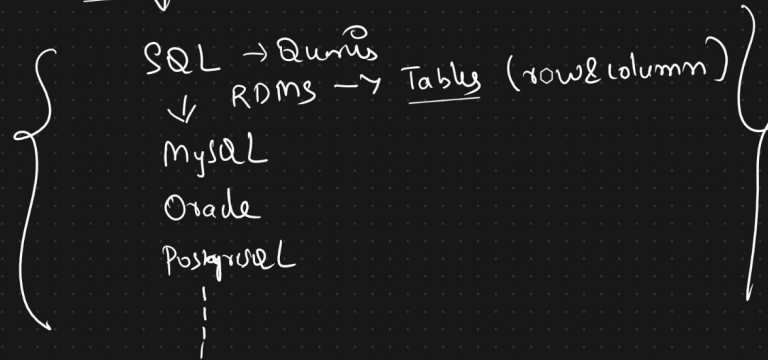 SQL → Queries
RDMS → Tables (row & column)
↓
MySQL
Oracle
PostgreSQL